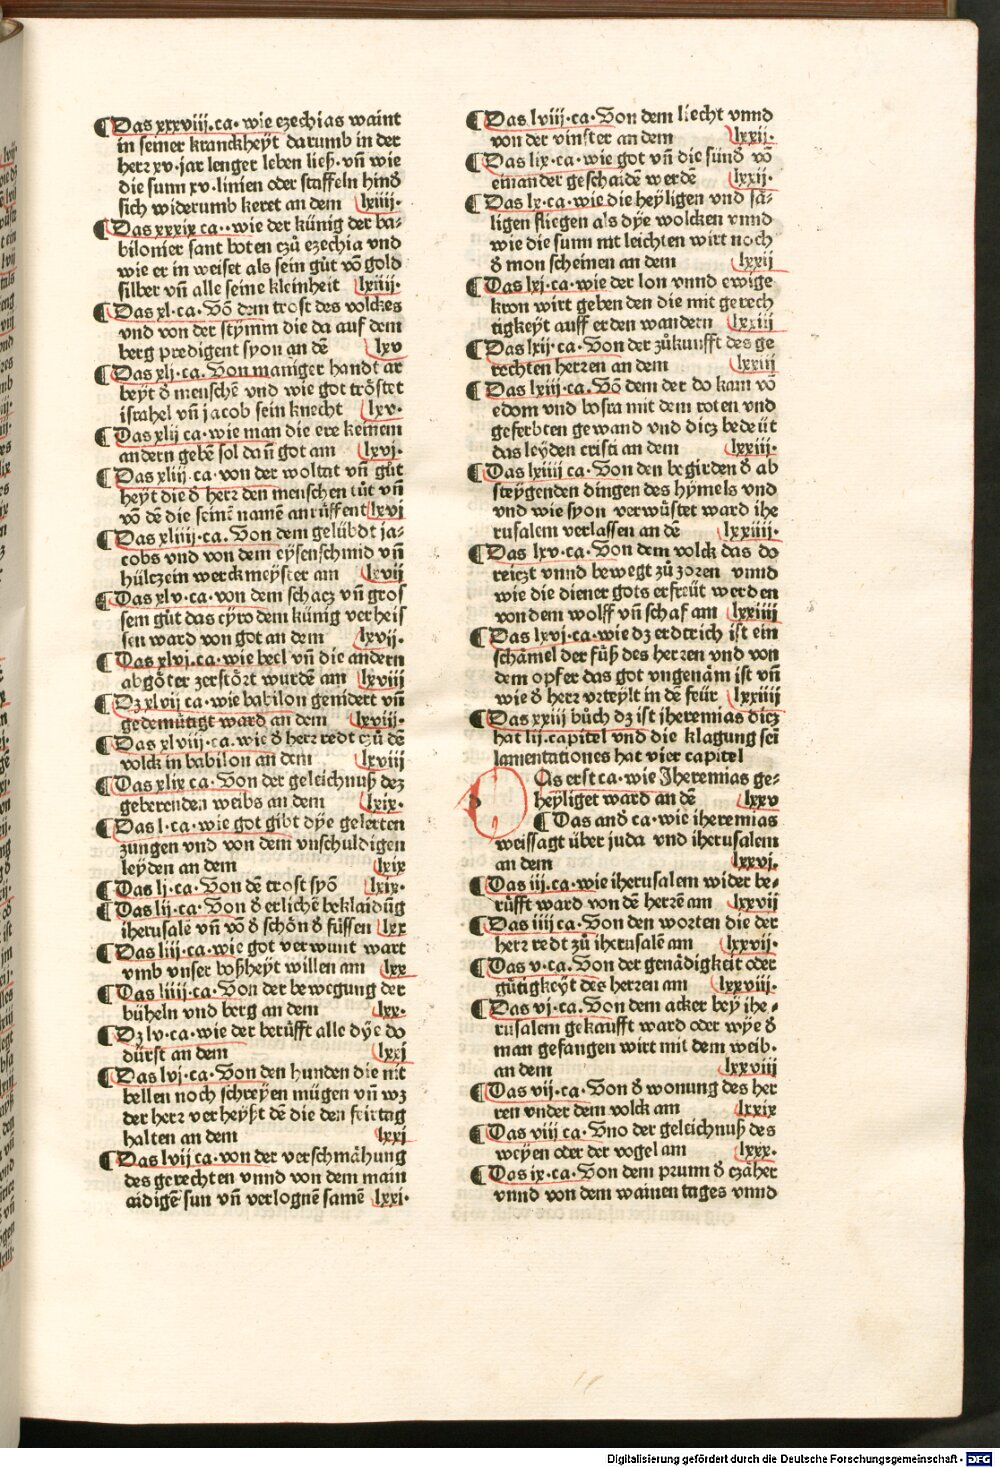 ¶Das xxxviii.ca. wie ezechias waint
in seiner kranckheyt darumb in der
herr xv. jar lenger leben ließ. vn̄ wie
die sunn xv. linien oder staffeln hind̕
sich widerumb keret an dem lxiiij.
¶Das xxxix ca.. wie der künig der ba⸗
bilonier sant boten czů ezechia vnd
wie er in weiset als sein gůt võ gold
silber vn̄ alle seine kleinheit lxiiij.
¶Das xl.ca. Võ dem trost des volckes
vnd von der stymm die da auf dem
berg predigent syon an dē lxv
¶Das xlj.ca. Von maniger handt ar
beyt d̕ menschē vnd wie got tröstet
israhel vn̄ jacob sein knecht lxv.
¶Das xlij ca. wie man die ere keinem
andern gebē sol dan̄ got am lxvj.
¶Das xliij.ca. von der woltat vn̄ gůt
heyt die d̕ herr den menschen tůt vn̄
võ dē die seinē namē anrůffent lxvj
¶Das xliiij.ca. Von dem gelübdt ja⸗
cobs vnd von dem eysenschmid vn̄
hülczein werckmeyster am lxvij
¶Das xlv.ca. von dem schacz vn̄ gros
sem gůt das cyro dem künig verheis
sen ward von got an dem lxvij.
¶Das xlvj.ca. wie beel vn̄ die andern
abgöter zerstört wurdē am lxviij
¶Dz xlvij ca. wie babilon genidert vn̄
gedemütigt ward an dem lxviij.
¶Das xlviij.ca. wie d̕ herr redt czů dē
volck in babilon an dem lxviij
¶Das xlix ca. Von der geleichnuß dez
geberenden weibs an dem lxix.
¶Das l.ca. wie got gibt dye gelerten
zungen vnd von dem vnschuldigen
leyden an dem lxix
¶Das lj.ca. Von dē trost syõ lxix.
¶Das lij.ca. Von d̕ erlichē beklaidūg
iherusalē vn̄ võ d̕ schön d̕ füssen lxx
¶Das liij.ca. wie got verwunt wart
vmb vnser boßheyt willen am lxx
¶Das liiij.ca. Von der bewegung der
büheln vnd berg an dem lxx.
¶Dz lv.ca. wie der berüfft alle dye do
dürst an dem lxxj
¶Das lvj.ca. Von den hunden die nit
bellen noch schreyen mügen vn̄ wz
der herr verheyßt dē die den feirtag
halten an dem lxxj
¶Das lvij ca. von der verschmähung
des gerechten vnnd von dem main
aidigē sun vn̄ verlognē samē lxxi.
¶Das lviij.ca. Von dem liecht vnnd
von der vinster an dem lxxij.
¶Das lix.ca. wie got vn̄ die sünd̕ võ
einander geschaidē werdē lxxij.
¶Das lx.ca. wie die heyligen vnd sä⸗
ligen fliegen als dye wolcken vnnd
wie die sunn nit leichten wirt noch
d̕ mon scheinen an dem lxxij
¶Das lxj.ca. wie der lon vnnd ewige
kron wirt geben den die mit gerech
tigkeyt auff erden wandern lxxiij
¶Das lxij.ca. Von der zůkunfft des ge
rechten herren an dem lxxiij
¶Das lxiij.ca. Võ dem der do kam võ
edom vnd bosra mit dem roten vnd
geferbten gewand vnd dicz bedeüt
das leyden cristi an dem lxxiij.
¶Das lxiiij ca. Von den begirden d̕ ab
steygenden dingen des hymels vnd
vnd wie syon verwüstet ward ihe
rusalem verlassen an dē lxxiiij.
¶Das lxv.ca. Von dem volck das do
reiczt vnnd bewegt zů zoren vnnd
wie die diener gots erfreüt werden
von dem wolff vn̄ schaf am lxxiiij
¶Das lxvj.ca. wie dz erdtrich ist ein
schämel der füß des herren vnd von
dem opfer das got vngenäm ist vn̄
wie d̕ herr vrteylt in dē feür lxxiiij
¶Das xxiij bůch dz ist iheremias dicz
hat lij.capitel vnd die klagung seī
lamentationes hat vier capitel
As erst ca. wie Jheremias ge⸗
heyliget ward an dē lxxv
¶Das and̕ ca. wie iheremias
weissagt über juda vnd iherusalem
an dem lxxvj.
¶Das iij.ca. wie iherusalem wider be⸗
růfft ward von dē herrē am lxxvij
¶Das iiij ca. Von den worten die der
herr redt zů iherusalē am lxxvij.
¶Das v.ca. Von der genädigkeit oder
gütigkeyt des herren am lxxviij.
¶Das vj.ca. Von dem acker bey ihe⸗
rusalem gekaufft ward oder wye d̕
man gefangen wirt mit dem weib.
an dem lxxviij
¶Das vij.ca. Von d̕ wonung des her
ren vnder dem volck am lxxix
¶Das viij ca. Vno der geleichnuß des
weyen oder der vogel am lxxx.
¶Das ix.ca. Von dem prunn d̕ czäher
vnnd von dem wainen tages vnnd
Digitalisierung gefördert durch die Deutsche Forschungsgemeinschaft - DFG